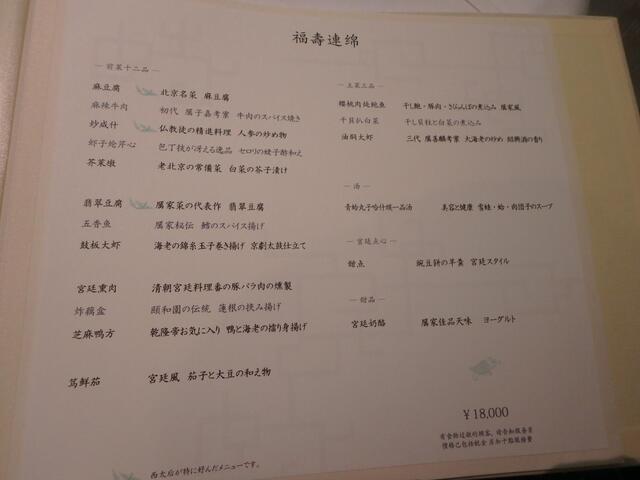 福壽連綿
— 前菜十二品 —
麻豆腐 北京名菜 麻豆腐
麻辣牛肉 初代 厲子嘉考案 牛肉のスパイス焼き
炒咸什 仏教徒の精進料理 人参の炒め物
虾子烩芹心 包丁技が冴える逸品 セロリの蝦子酢和え
芥菜墩 老北京の常備菜 白菜の芥子漬け
翡翠豆腐 厲家菜の代表作 翡翠豆腐
五香魚 厲家秘伝 鱈のスパイス揚げ
鼓板大虾 海老の錦糸玉子巻き揚げ 京劇太鼓仕立て
宮廷熏肉 清朝宮廷料理番の豚バラ肉の燻製
炸藕盒 頤和園の伝統 蓮根の挟み揚げ
芝麻鴨方 乾隆帝お気に入り 鴨と海老の擂り身揚げ
篤鮮茄 宮廷風 茄子と大豆の和え物
西太后が特に好んだメニューです。
— 主菜三品 —
櫻桃肉炖鮑魚 干し鮑・豚肉・さくらんぼの煮込み 厲家風
干貝扒白菜 干し貝柱と白菜の煮込み
油焖大虾 三代 厲善麟考案 大海老の炒め 紹興酒の香り
— 湯 —
青蛤丸子哈什蟆一品汤 美容と健康 雪蛙・蛤・肉団子のスープ
— 宮廷点心 —
甜点 豌豆餅の羊羹 宮廷スタイル
— 甜品 —
宮廷奶酪 厲家佳品天味 ヨーグルト
￥18,000
有食物过敏的顾客，请告知服务员
價格已包括税金 另加十點服務費